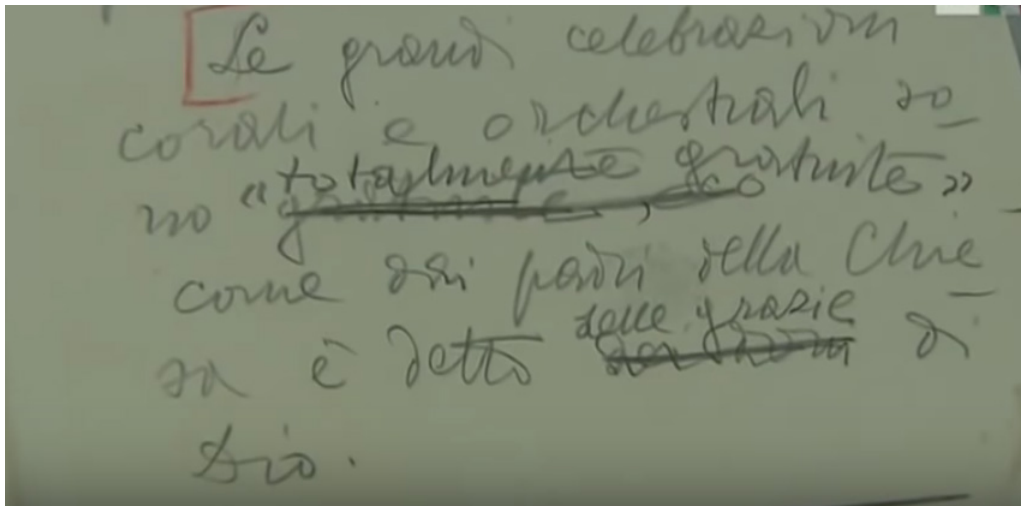 Le grandi celebrazioni
corali e orchestrali so
totalmente gratuite»
no «
come dai padri della Chie
delle grazie
sa è detto di
Dio.